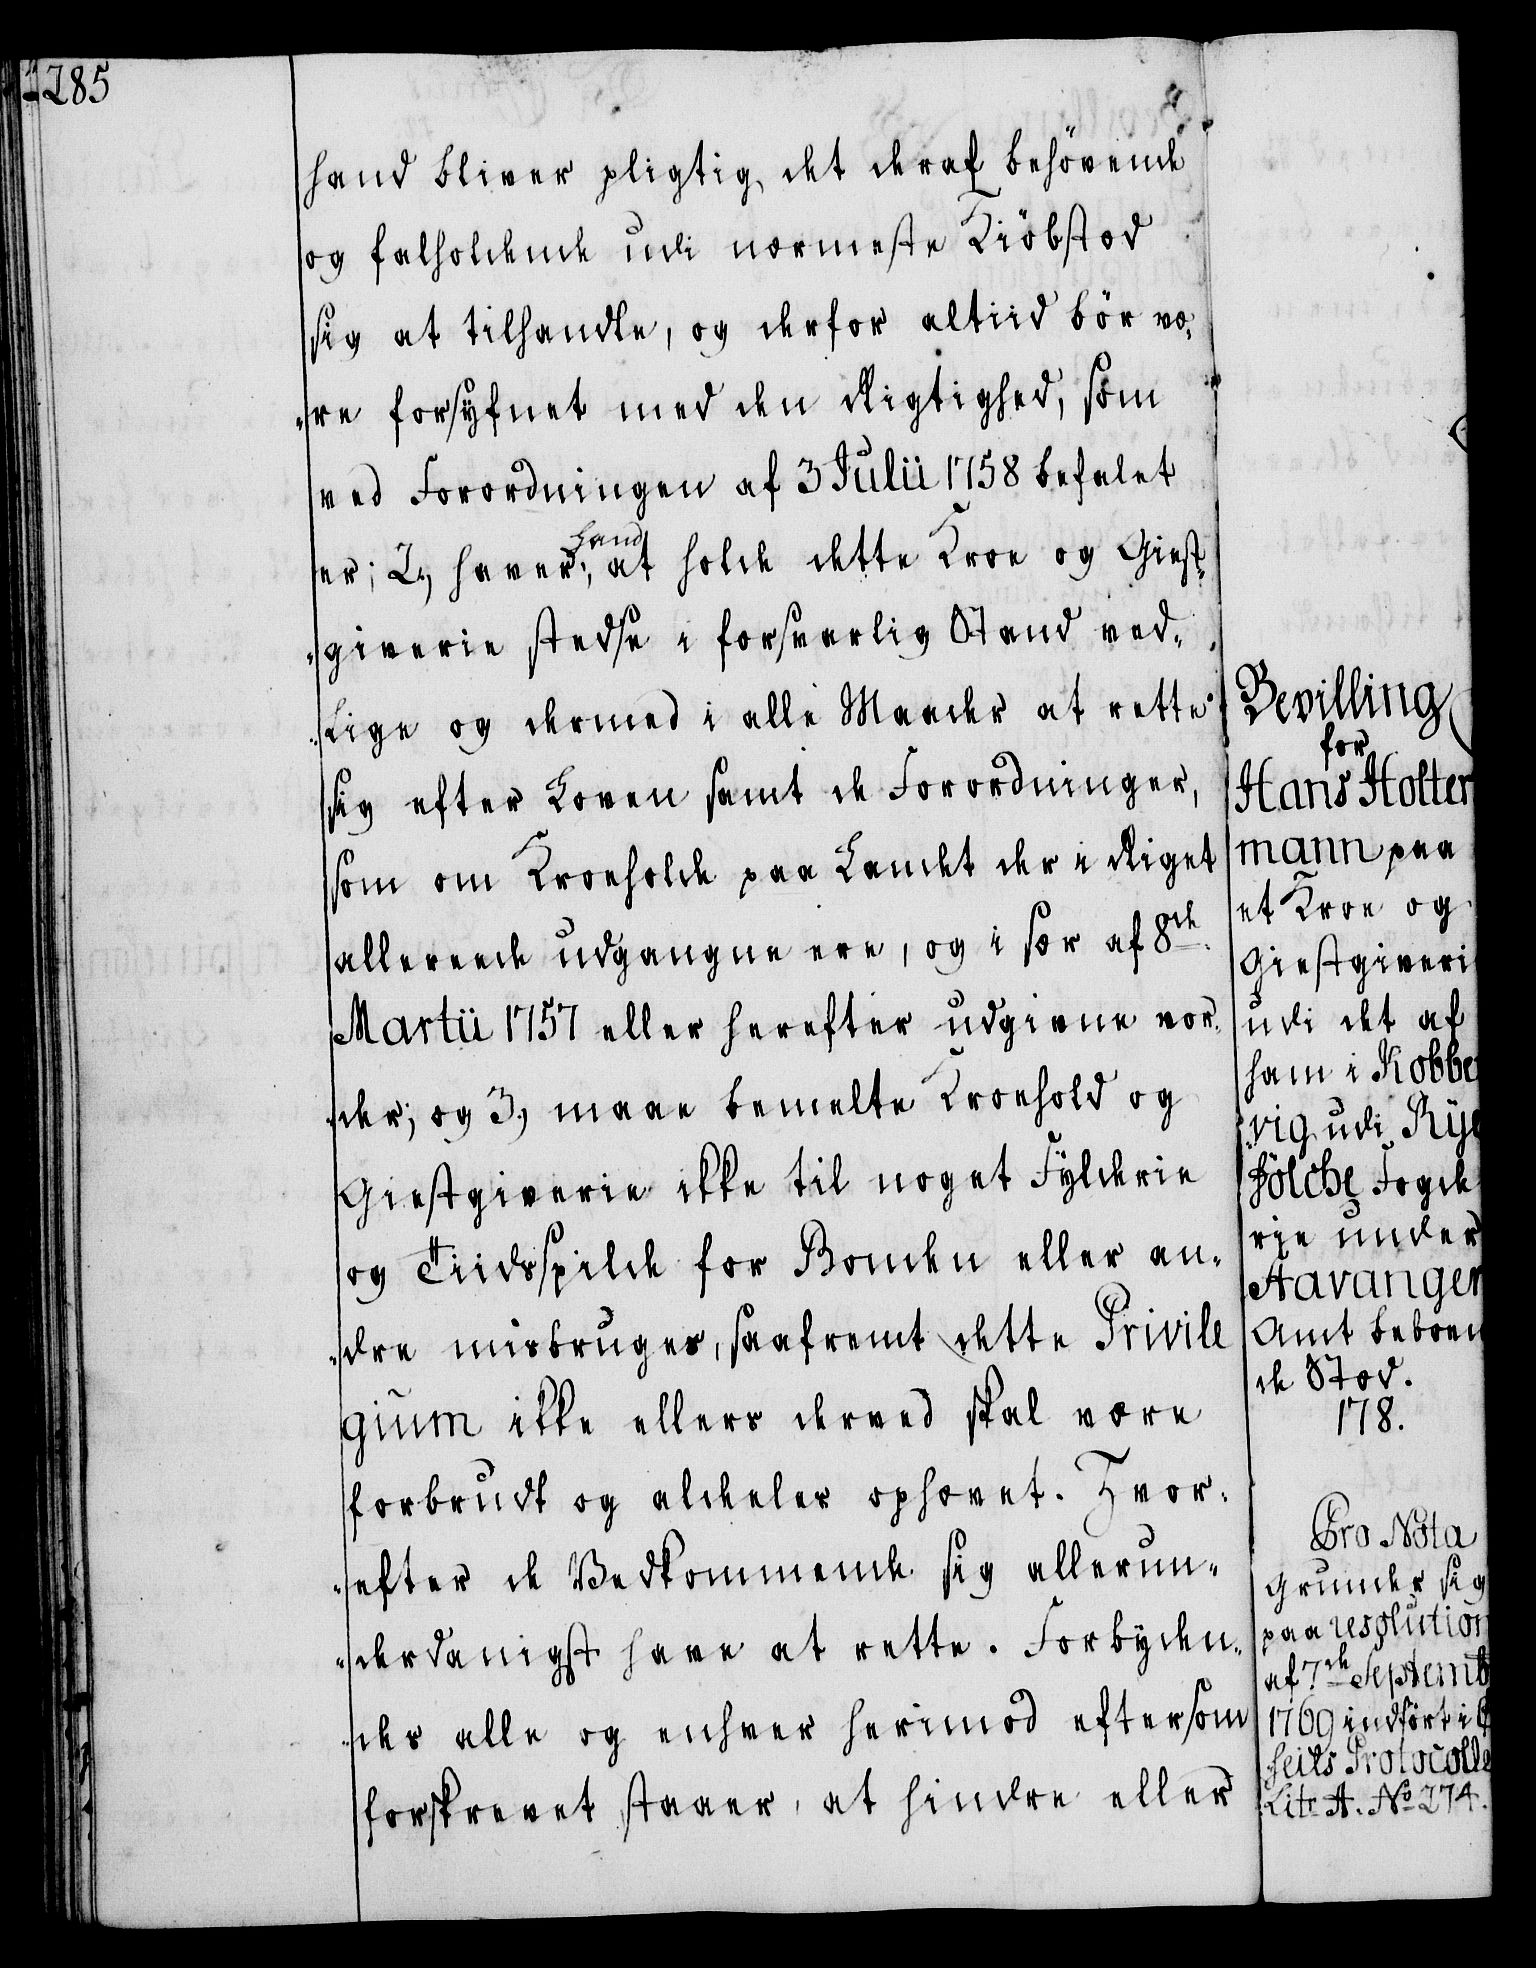 285
hand bliver pligtig, det deraf behövende
og falholdende udi nærmeste Kiöbstæd
sig at tilhandle, og derfor altiid bör væ-
-re forsÿnet med den Rigtighed, som
ved Forordningen af 3 Julii 1758 befalet
er; 2, haver hand at holde dette Kroe og Giest-
-giverie stedse i forsvarlig Stand ved-
-lige og dermed i alle Maader at rette
sig efter Loven samt de Forordninger,
som om Kroehold paa Landet her i Riget
allereede udgangne ere, og i sær af 8de
Martii 1757 eller herefter udgivne vor-
-der; og 3, maae bemelte Kroehold og
Giestgiverie ikke til noget Fylderie
og Tiidsspilde for Bonden eller an-
-dre misbruges, saafremt dette Privile
gium ikke ellers derved skal være
forbrudt og aldeles ophævet. Hvor-
-efter de Vedkommende sig allerun-
-derdanigst have at rette. Forbÿden-
-des alle og enhver herimod eftersom
forskrevet staaer, at hindre eller
Bevilling
for
Hans Holter
mann paa
et Kroe og
Giestgiveri
udi det af
ham i Kobbe
vig udi Rÿe
fölche Fogde
rie under
Stavanger
Amt beboen
de Stæd.
178.
Pro Nota
grunder sig
paa resolution
af 7de Septemb
1769 indfört i
Protocolle
Litr A. No 274.